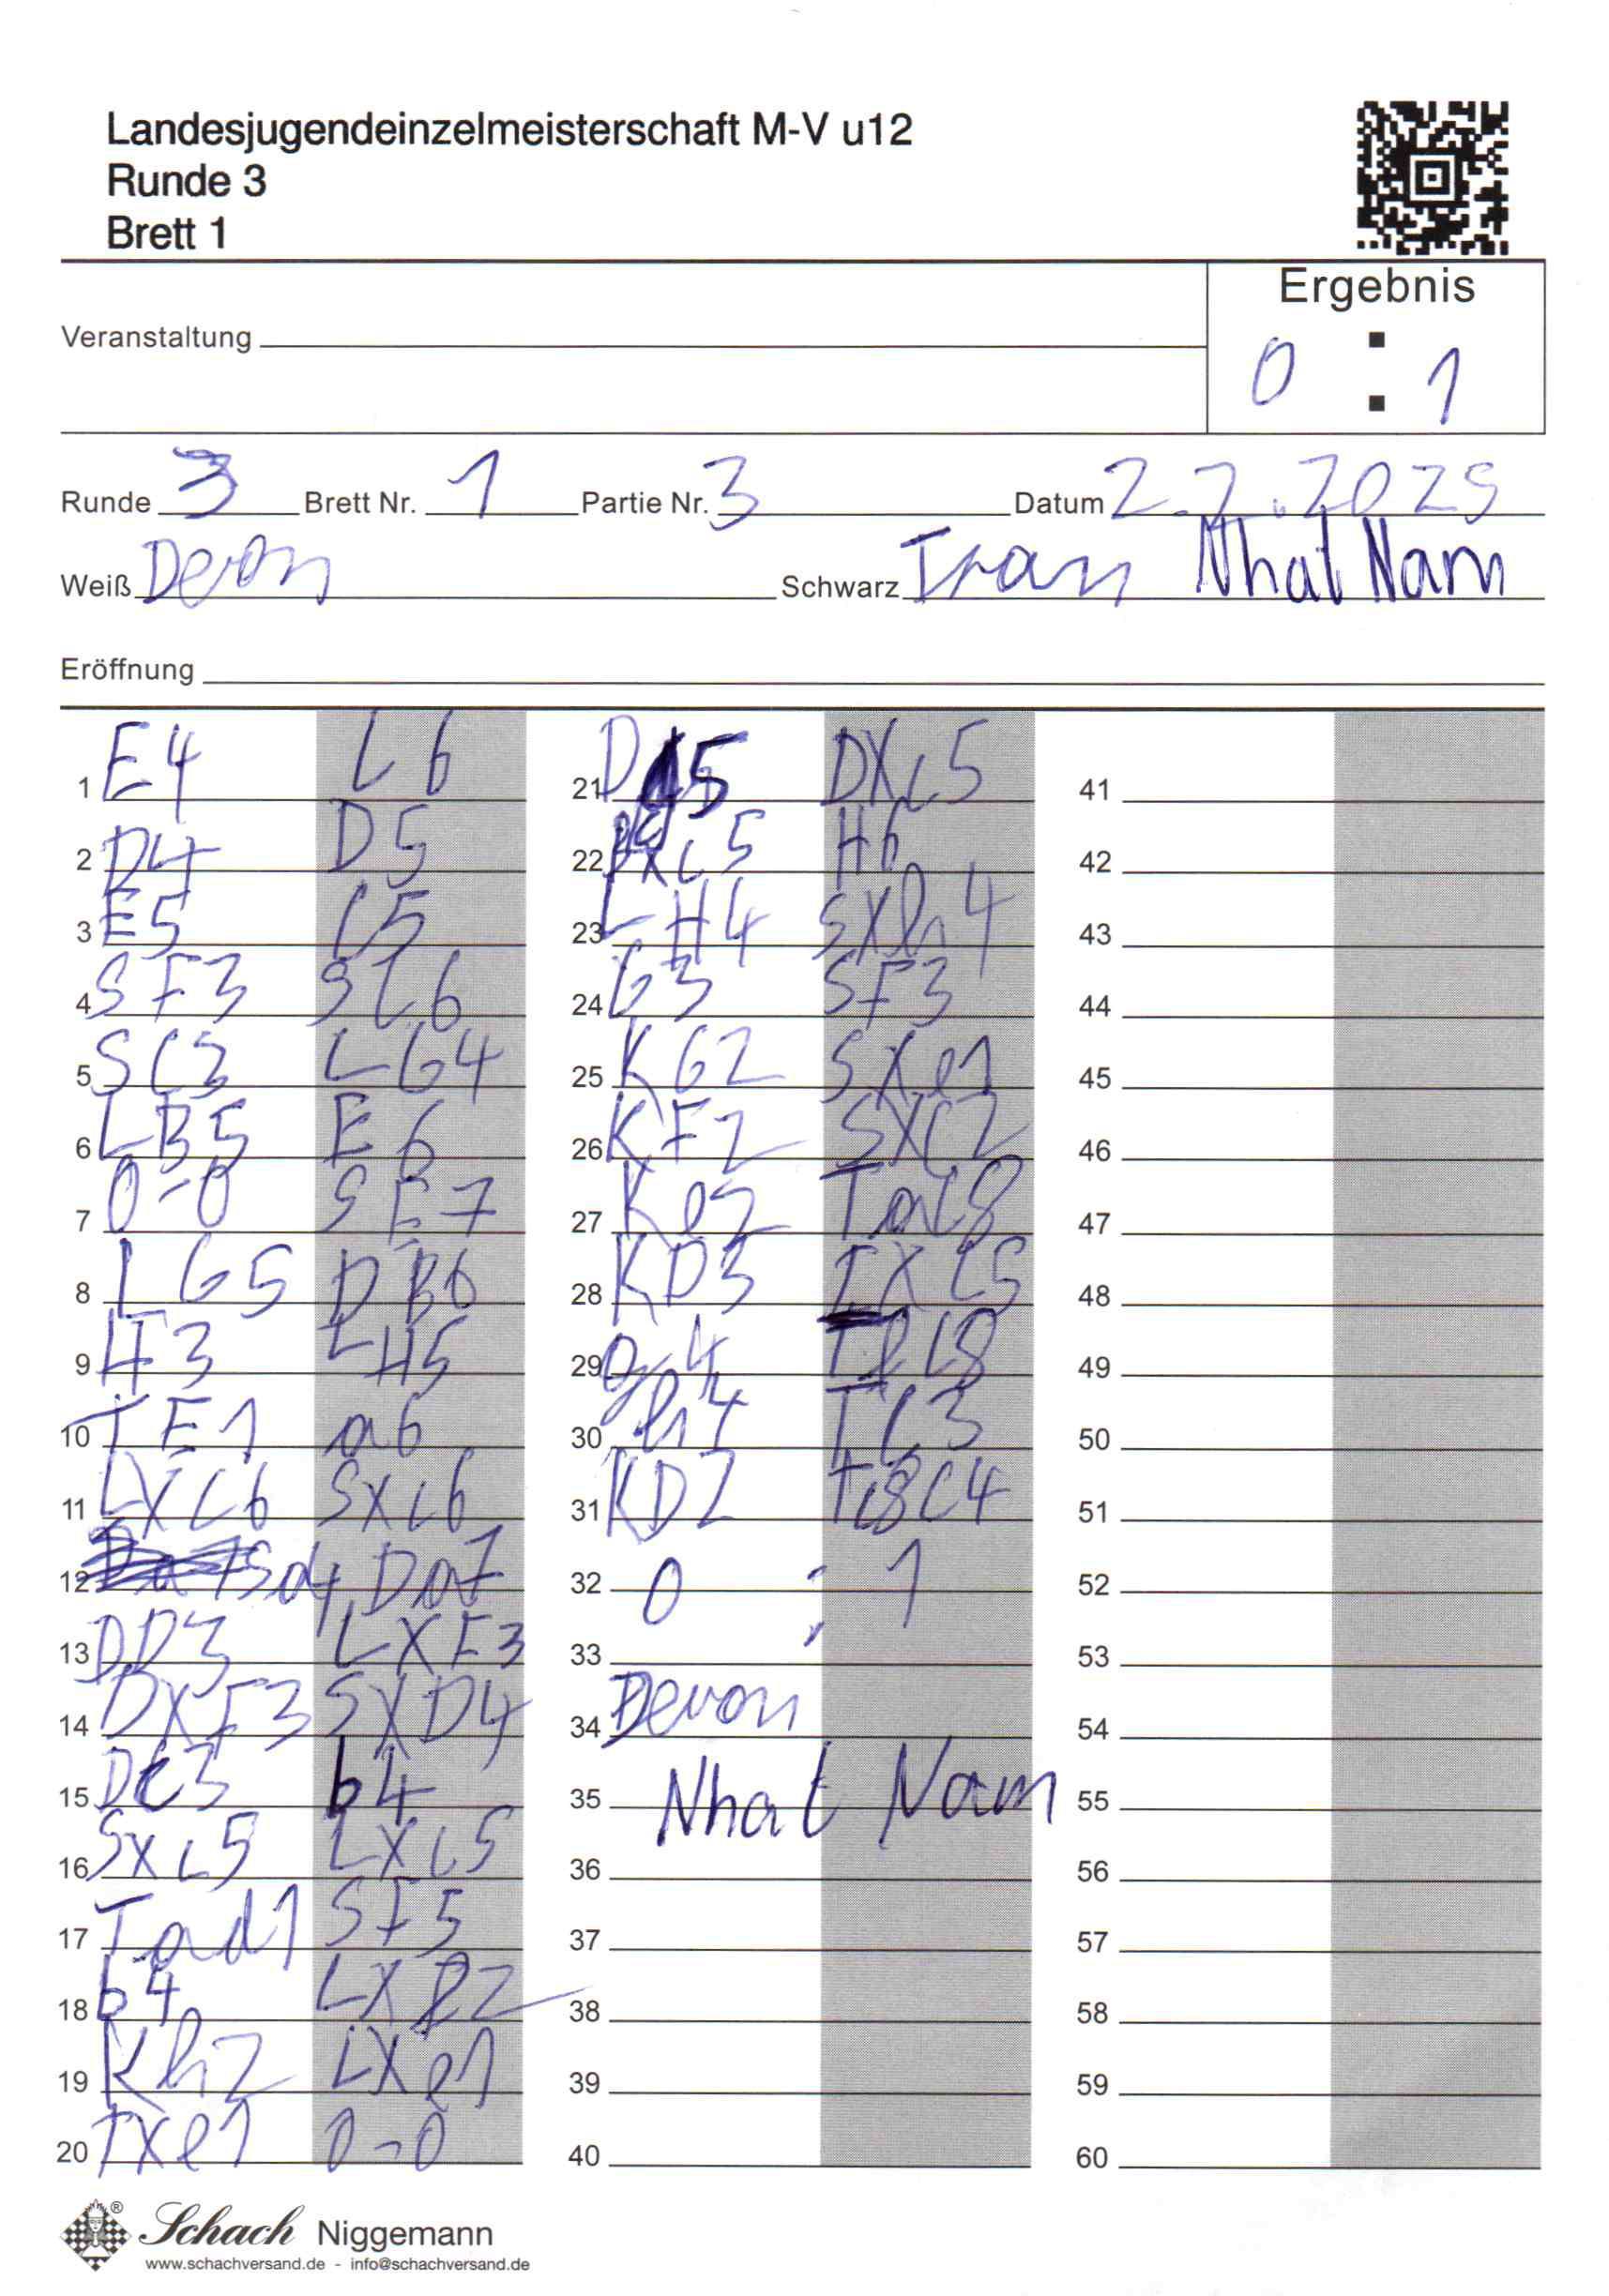 Landesjugendeinzelmeisterschaft M-V u12
Runde 3
Brett 1
Ergebnis
Veranstaltung
0 : 1
Runde 3 Brett Nr. 1 Partie Nr. 3 Datum 2.2.2025
Weiß Devon Schwarz Tran Nhat Nam
Eröffnung
1 E4 C6
2 D4 D5
3 E5 C5
4 SF3 SC6
5 SC3 LG4
6 LB5 E6
7 0-0 SE7
8 LG5 DB6
9 H3 LH5
10 TE1 a6
11 LXC6 SXc6
12 Sa4 Da7
13 DD3 LXF3
14 DXF3 SXD4
15 Dc3 b4
16 Sxc5 LXc5
17 Tad1 SF5
18 b4 LXF2
19 Kh2 LXe1
20 TXe1 0-0
21 D 5 DXc5
22 Xc5 H6
23 LH4 SXh4
24 G3 SF3
25 KG2 SXe1
26 KF2 SXC2
27 Ke2 TaC8
28 KD3 TXC5
29 g4 TfC8
30 h4 TC3
31 KD2 T8C4
32 0 : 1
33
34 Devon
35 Nhat Nam
36
37
38
39
40
41
42
43
44
45
46
47
48
49
50
51
52
53
54
55
56
57
58
59
60
Schach Niggemann
www.schachversand.de - info@schachversand.de